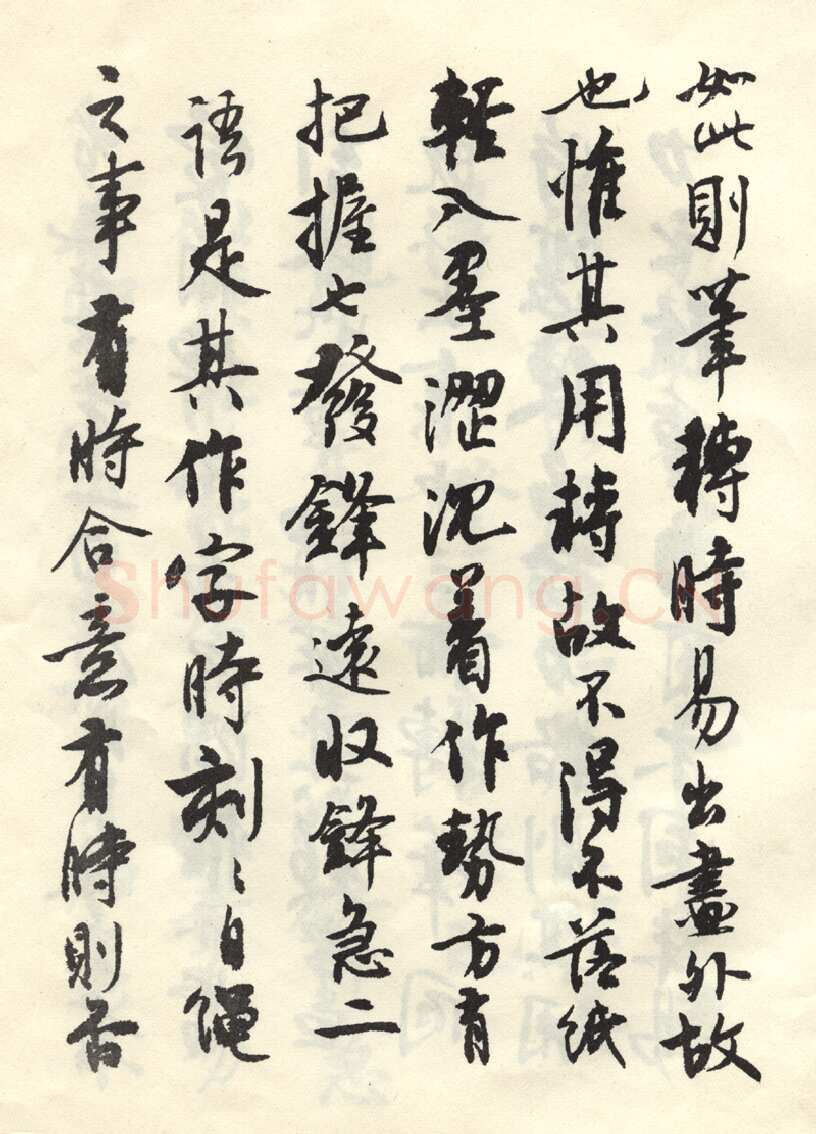 如此則筆轉時易出畫外故
也惟其用轉故不得不落紙
輕入墨澀沉着作勢方有
把握也發鋒遠收鋒急二
語是其作字時刻〻自繩
之事有時合意有時則否
Shufawang.CN